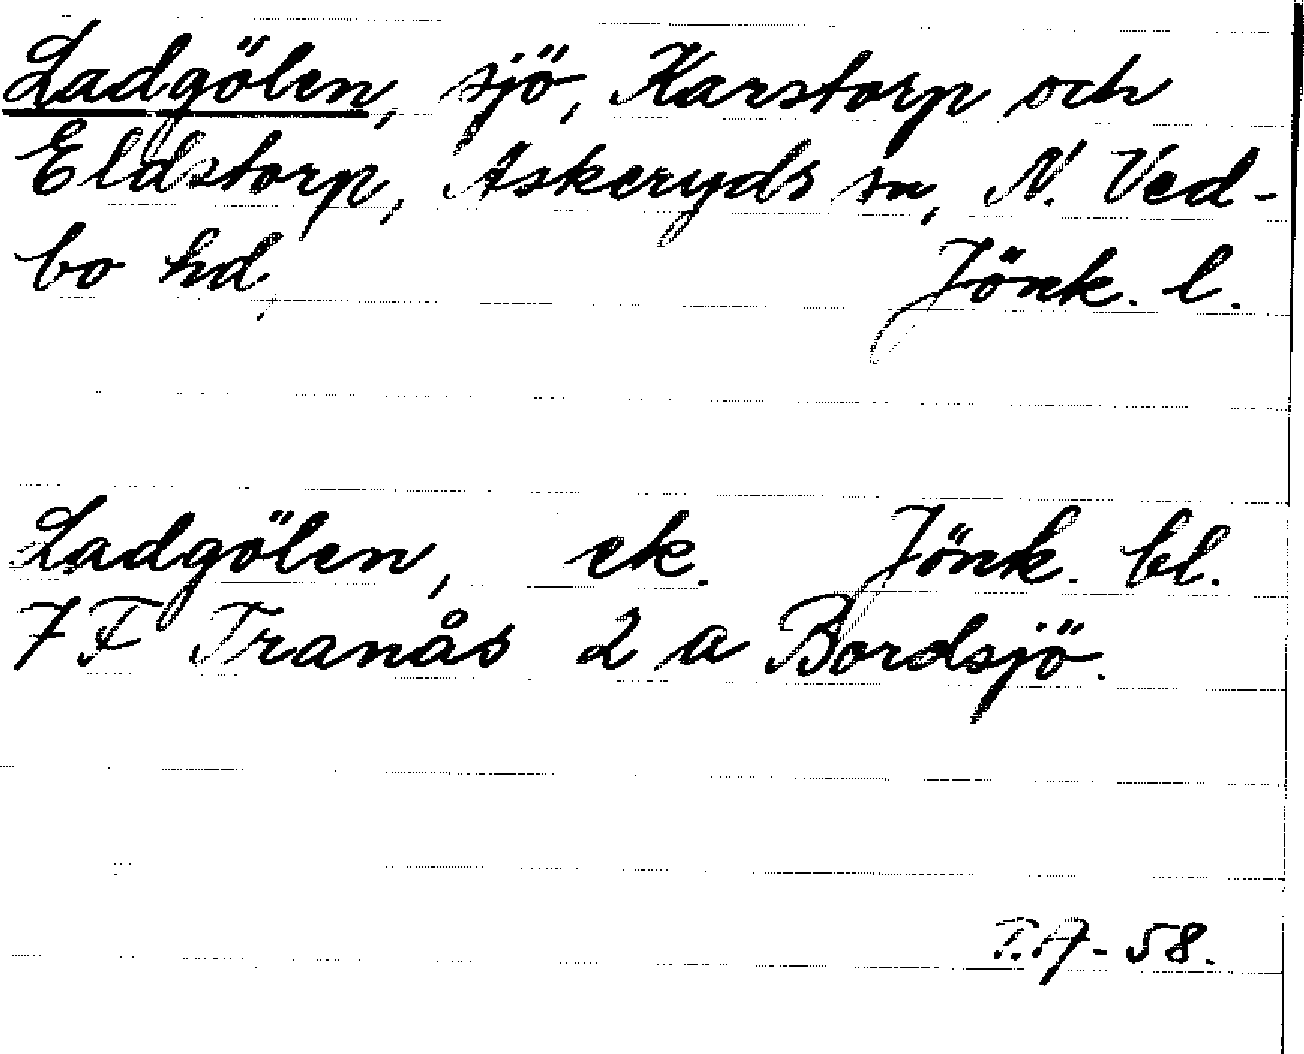 Ladgölen, sjö, Karstorp och
Eldstorp, Askeryds sn, N. Ved-
bo hd, Jönk. l.
Ladgölen, ek. Jönk. bl.
7F Tranås 2 a Bordsjö.
T.A-58.